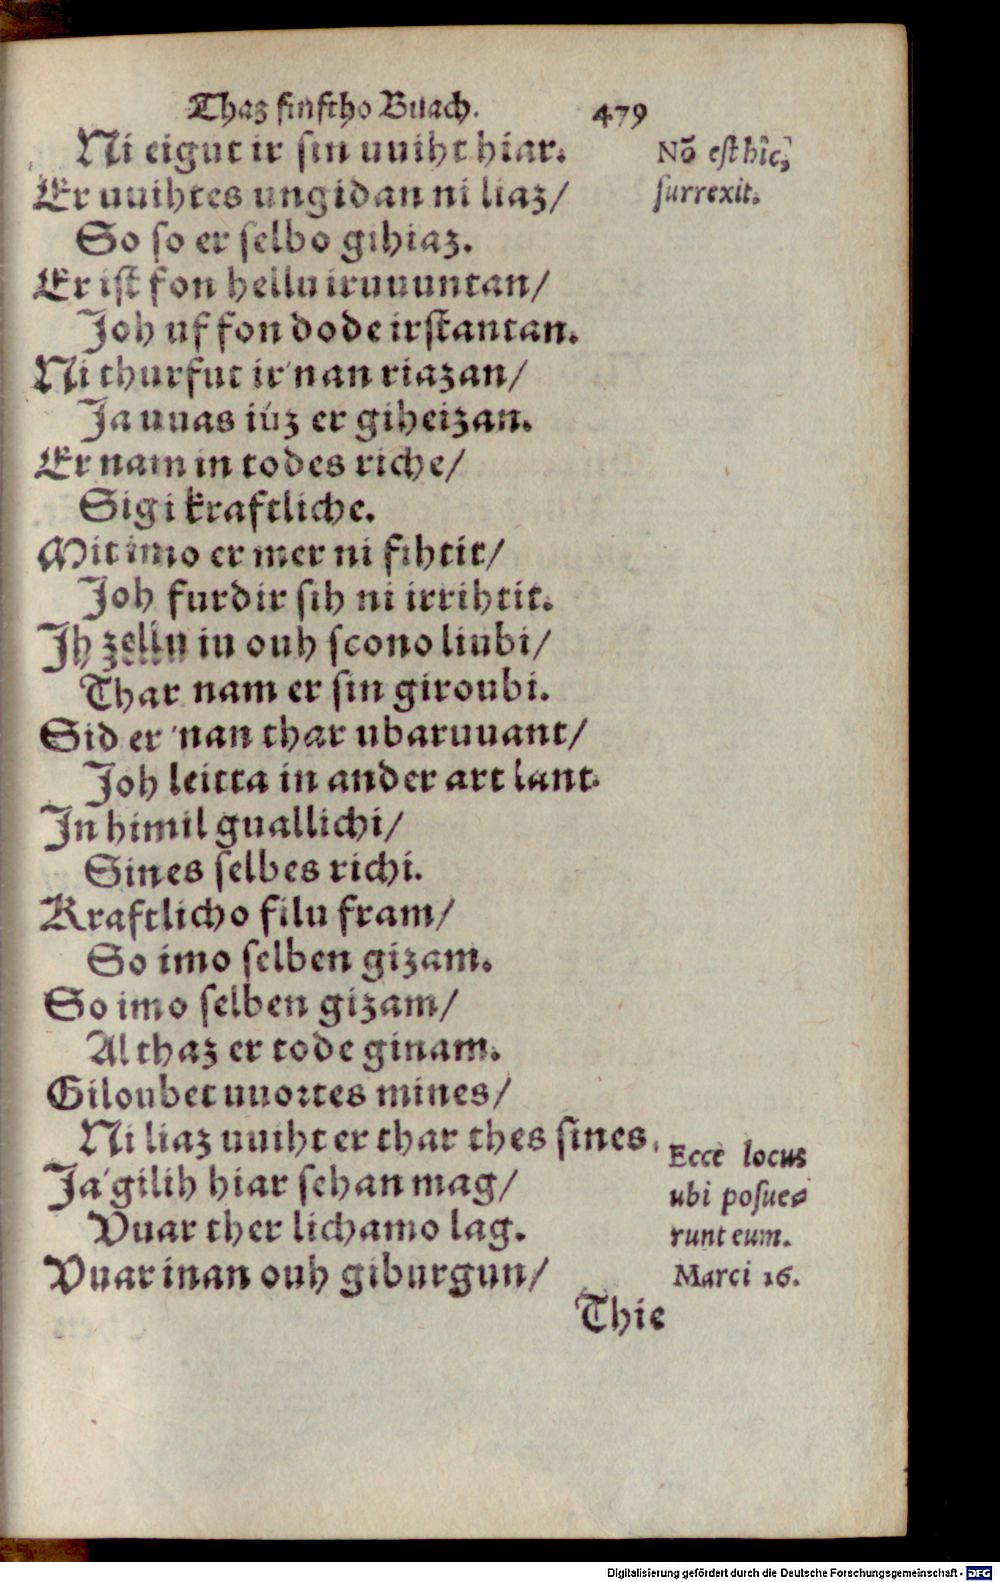 Thaz finftho Buach. 479
Ni eigut ir sin uuiht hiar.
Nō est hîc,
Er uuihtes ungidan ni liaz/
surrexit.
So so er selbo gihiaz.
Er ist fon hellu iruuuntan/
Joh uf fon dode irstantan.
Ni thurfut ir'nan riazan/
Ja uuas iúz er giheizan.
Er nam in todes riche/
Sigi kraftliche.
Mit imo er mer ni fihtit/
Joh furdir sih ni irrihtit.
Jh zellu iu ouh scono liubi/
Thar nam er sin giroubi.
Sid er 'nan thar ubaruuant/
Joh leitta in ander art lant.
In himil guallichi/
Sines selbes richi.
Kraftlicho filu fram/
So imo selben gizam.
So imo selben gizam/
Al thaz er tode ginam.
Giloubet uuortes mines/
Ni liaz uuiht er thar thes sines.
Ecce locus
Ja'gilih hiar sehan mag/
ubi posue-
Vuar ther lichamo lag.
runt eum.
Vuar inan ouh giburgun/
Marci 16.
Thie
Digitalisierung gefördert durch die Deutsche Forschungsgemeinschaft - DFG